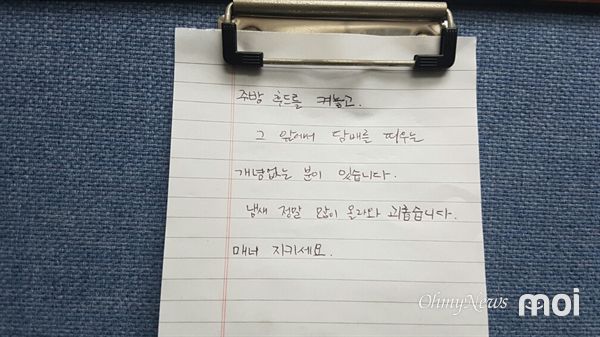 주방 후드를 켜놓고.
그 앞에서 담배를 떼우는
개념없는 분이 있습니다.
냄새 정말 많이 올라와 괴롭습니다.
매너 지키세요.
OhmyNews moi